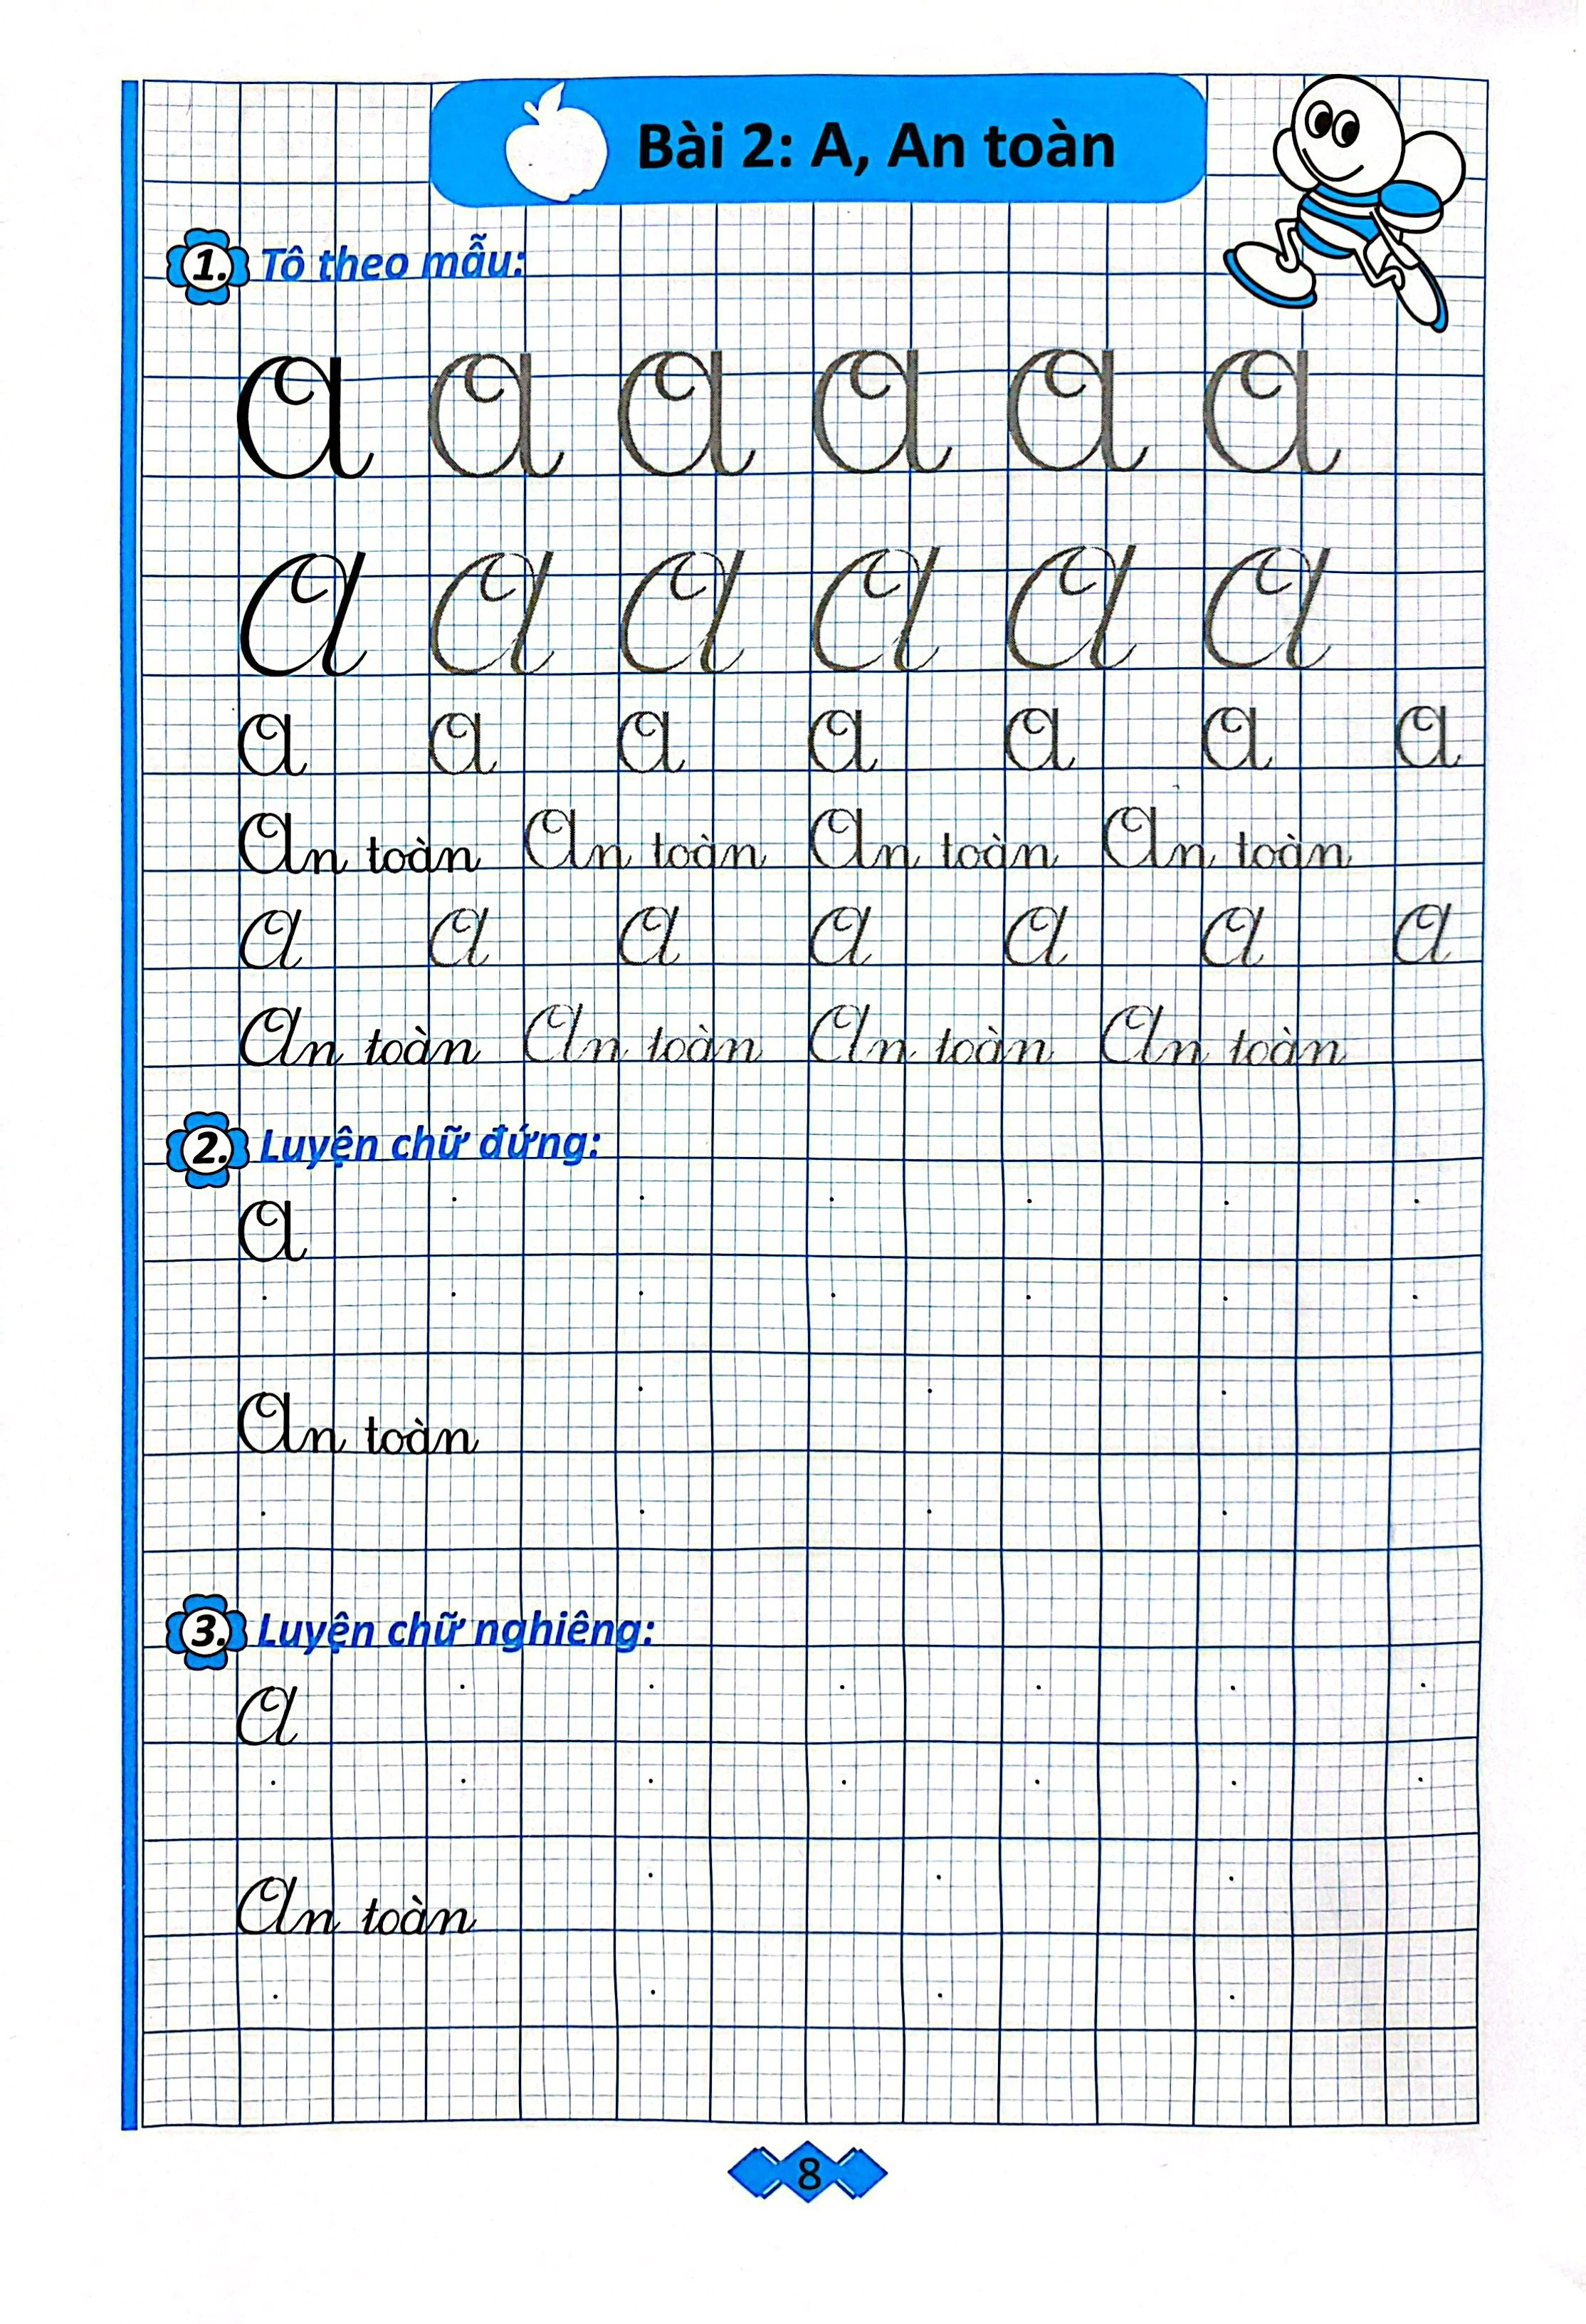 Bài 2: A, An toàn
1. Tô theo mẫu:
A A A A A A
A A A A A A
A A A A A A A
An toàn An toàn An toàn An toàn
A A A A A A A
An toàn An toàn An toàn An toàn
2. Luyện chữ đứng:
A
An toàn
3. Luyện chữ nghiêng:
A
An toàn
8